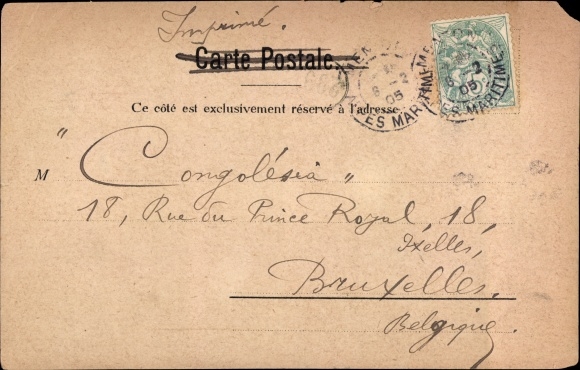 Imprimé.
Carte Postale
Ce côté est exclusivement réservé à l'adresse
M "Congolésia"
18, Rue du Prince Royal, 18,
Ixelles,
Bruxelles.
Belgique.
8 -2
05
ALPES MARITIMES
8 -2
05
ALPES MARITIMES